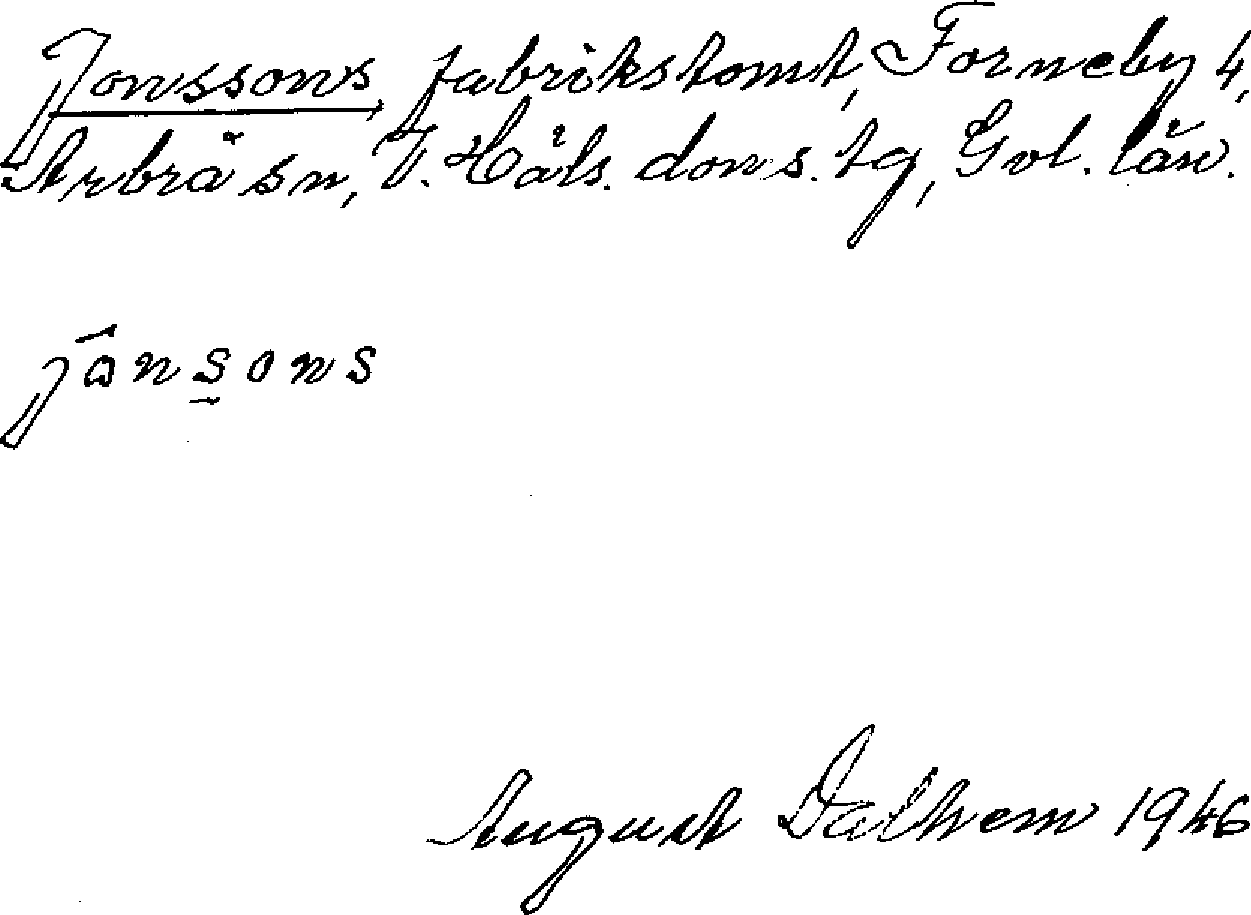 Jonssons fabrikstomt, Forneby 4,
Arbrå sn, V. Häls. doms. tg, Gvl. län.
jònsons
August Dalhem 1946